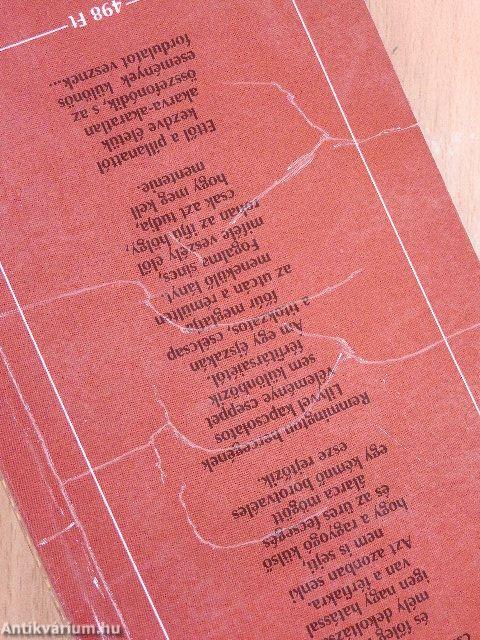 és főleg
mély dekoltáz
igen nagy hatással
van a férfiakra.
Azt azonban senki
nem is sejti,
hogy a ragyogó külső
és az üres fecsegés
álarca mögött
egy kémnő borotvaéles
esze rejtőzik...
Remmington hercegének
Lilyvel kapcsolatos
véleménye cseppet
sem különbözik
férfitársaiétól.
Ám egy éjszakán
a titokzatos, cselcsap
főúr megtalálja
az utcán a rémülten
menekülő lányt.
Fogalma sincs,
miféle veszély elől
rohan az ifjú hölgy,
csak azt tudja,
hogy meg kell
mentenie.
Ettől a pillanattól
kezdve életük
akarva-akaratlan
összefonódik, s az
események különös
fordulatot vesznek...
498 Ft
Antikvárium.hu